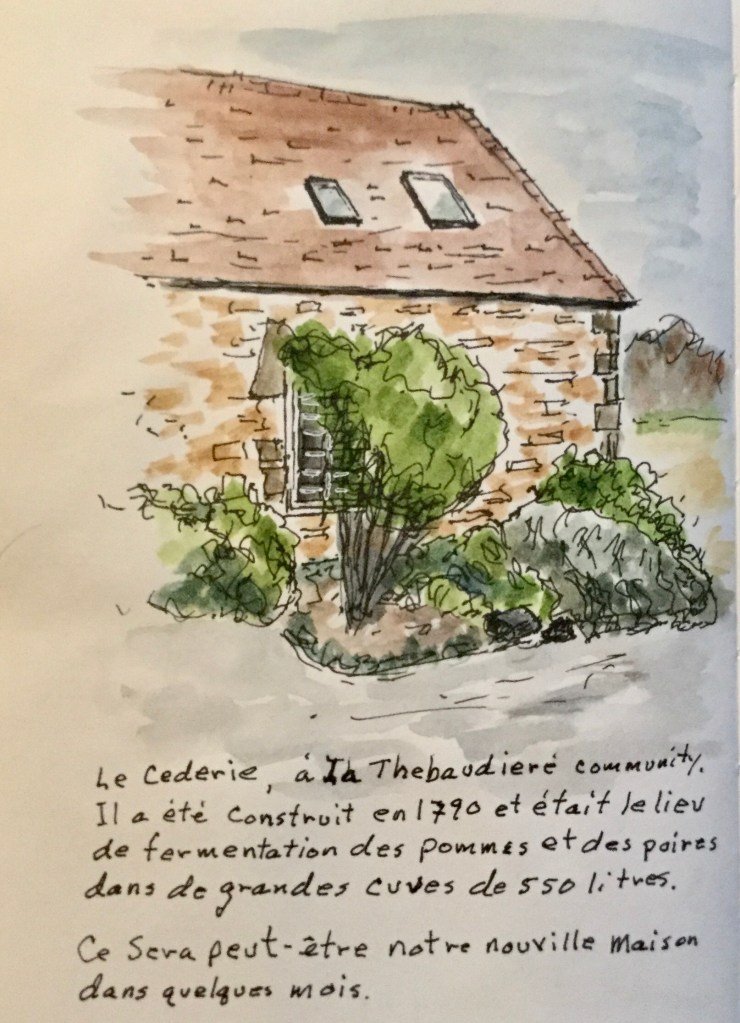 Le Cederie, á la Thebaudieré community.
Il a été construit en 1790 et était le lieu
de fermentation des pommes et des poires
dans de grandes cuves de 550 litres.
Ce Sera peut-être notre nouville maison
dans quelques mois.